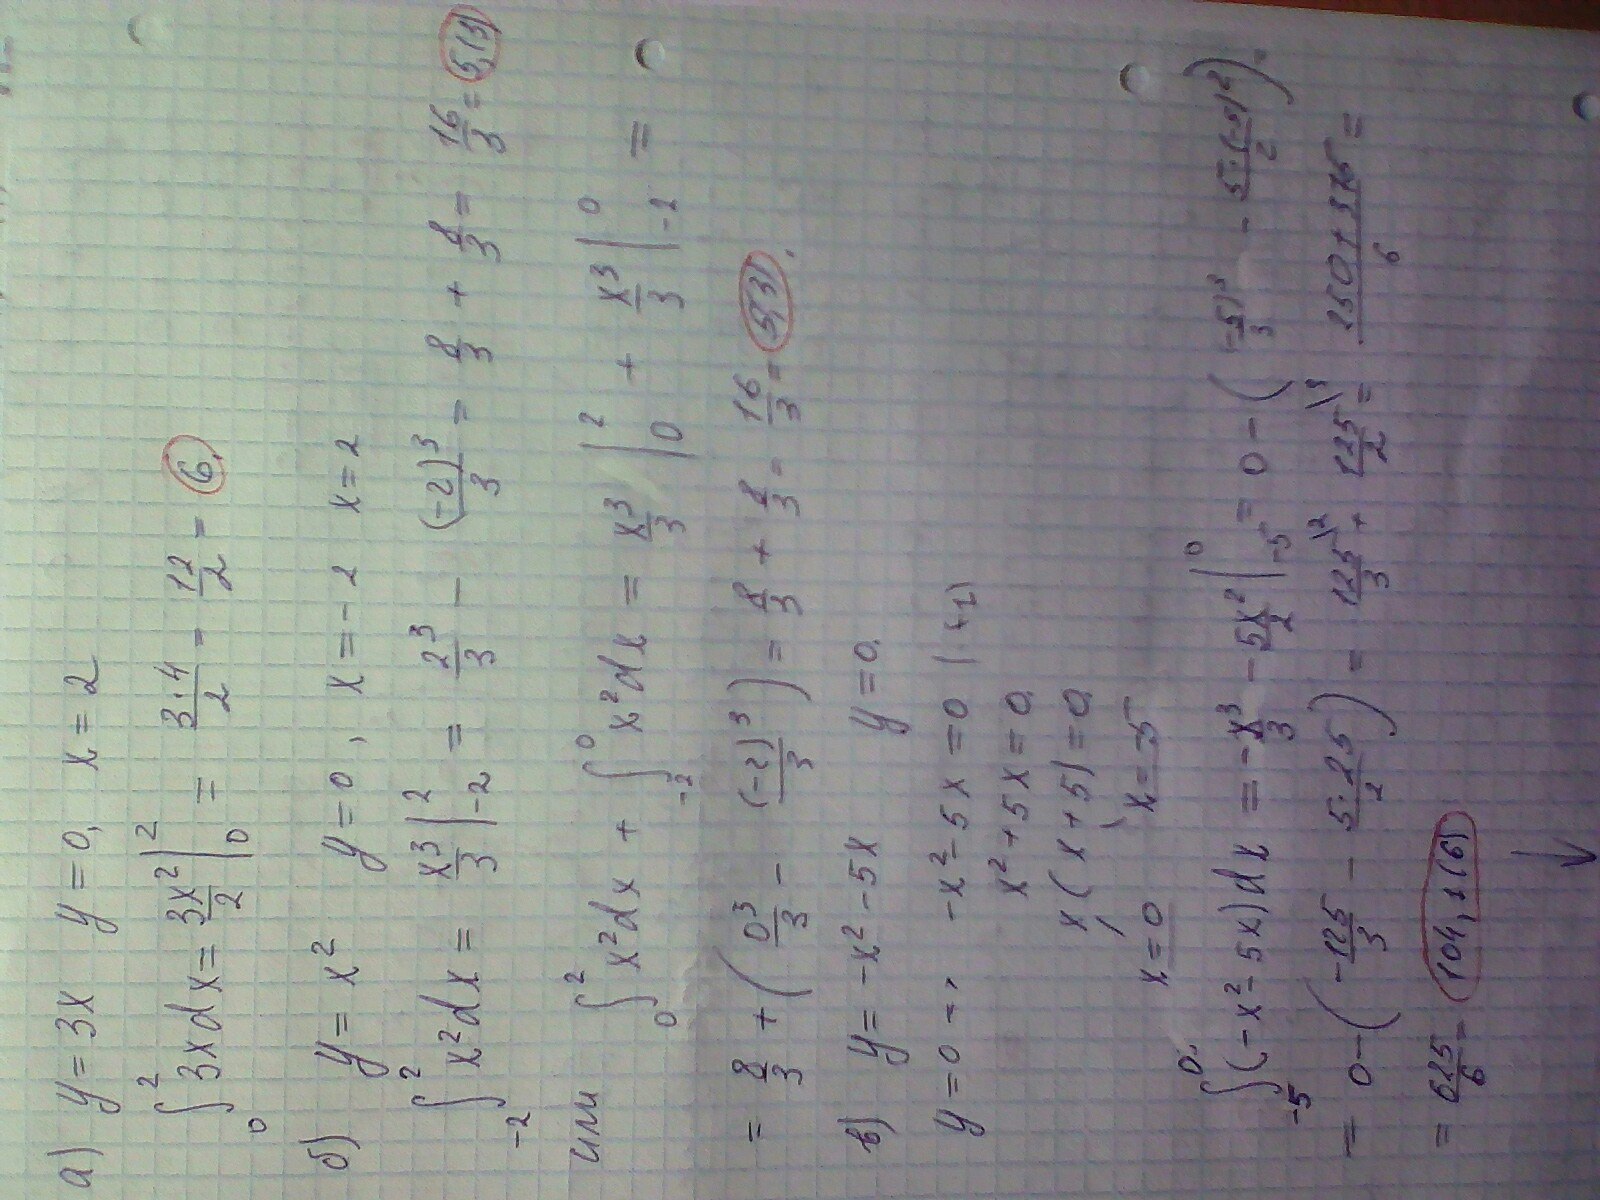 а) y = 3x   y = 0,   x = 2
∫₀² 3x dx = 3x²/2 |₀² = 3·4/2 = 12/2 = 6
б) y = x²   y = 0,   x = -2   x = 2
∫₋₂² x² dx = x³/3 |₋₂² = 2³/3 - (-2)³/3 = 8/3 + 8/3 = 16/3 = 5,(3)
или ∫₀² x² dx + ∫₋₂⁰ x² dx = x³/3 |₀² + x³/3 |₋₂⁰ =
= 8/3 + (0³/3 - (-2)³/3) = 8/3 + 8/3 = 16/3 = 5,(3).
в) y = -x² - 5x   y = 0.
y = 0   -x² - 5x = 0
x² + 5x = 0
x(x + 5) = 0
x = 0   x = -5
∫₋₅⁰ (-x² - 5x) dx = -x³/3 - 5x²/2 |₋₅⁰ = 0 - (-5)³/3 - 5·(-5)²/2) =
= 0 - (-125/3 - 5·25/2) = 125/3 \2 + 125/2 \3 = 250 + 375/6 =
= 625/6 = 104,1(6)